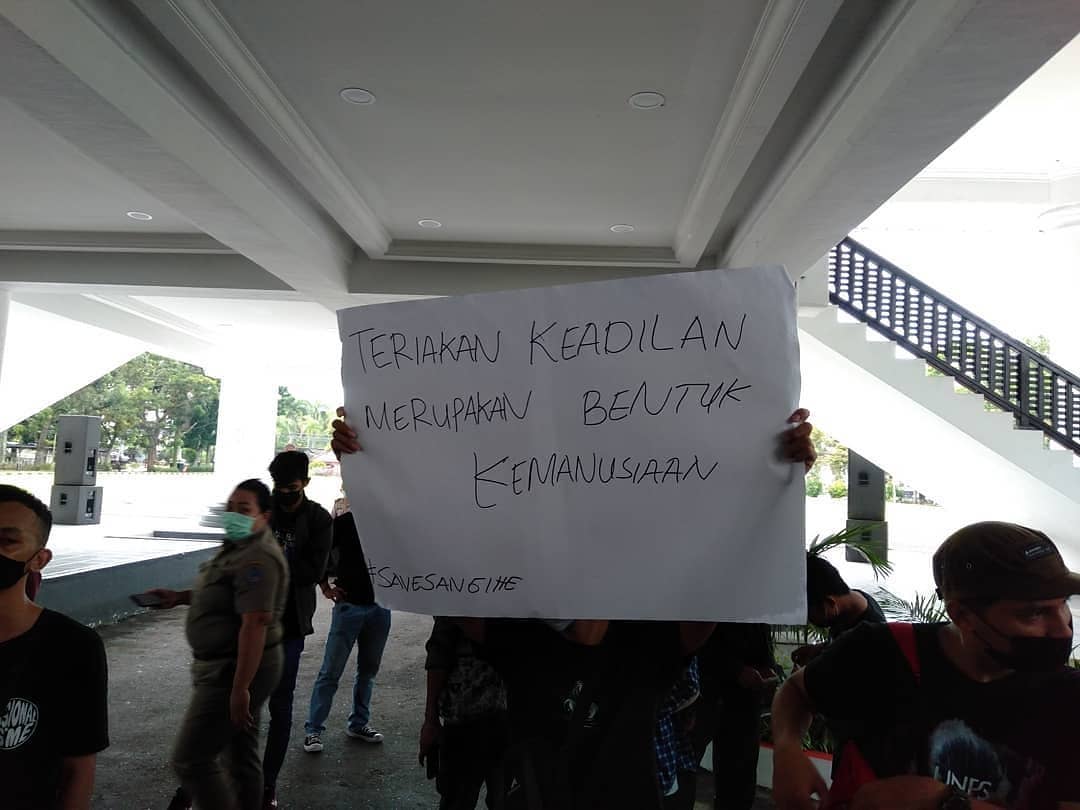 TERIAKAN KEADILAN
MERUPAKAN BENTUK
KEMANUSIAAN
#SAVESANGIHE
LINES